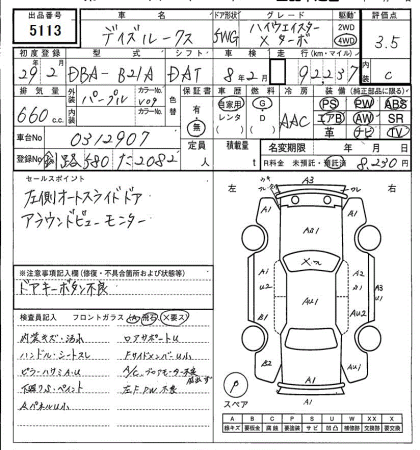 出品番号 車名 ドア形状 グレード 駆動 評価点
5113 デイズルークス 5WG ハイウェイスター Xターボ 2WD 4WD 3.5
初度登録 型式 シフト 車検 走行(km・マイル) 内装
29年2月 DBA-B21A DAT 8年2月 92,237 C
排気量 外装色 カラーNo. 色替 保証書 車歴 燃料 エアコン 装備(純正部品に限る)
660c.c. パープル V09 有・無 自家用 レンタ G D AAC PS PW ABS
エアB AW SR
革 ナビ TV
内装 カラーNo.
車台No. 0312907 定員 人 積載量 t 名変期限 年 月 日
登録No. 釧路580た2082 R料金 未預託・預託済 8,230円
セールスポイント
左側オートスライドドア
アラウンドビューモニター
※注意事項記入欄(修復・不具合箇所および状態等)
ドアキーボタン不良
検査員記入 フロントガラス (A・飛石・X要ス)
内装キズ・汚れ ロアサポートU
ハンドル・シートスレ FサイドメンバーU小
ピラーハサミA・U
下廻りS・ペイント 左F.PW.不良
AパネルU小
左 右
A3
A1
A1
AU1
A1
A2
A1
U2
U1
A2
A3
U1
AU1
A1
A1
スペア
A B C P S U W X XX X
線キズ 要板金 腐蝕 要塗装 サビ 凹凸 補修跡 交換跡 要交換